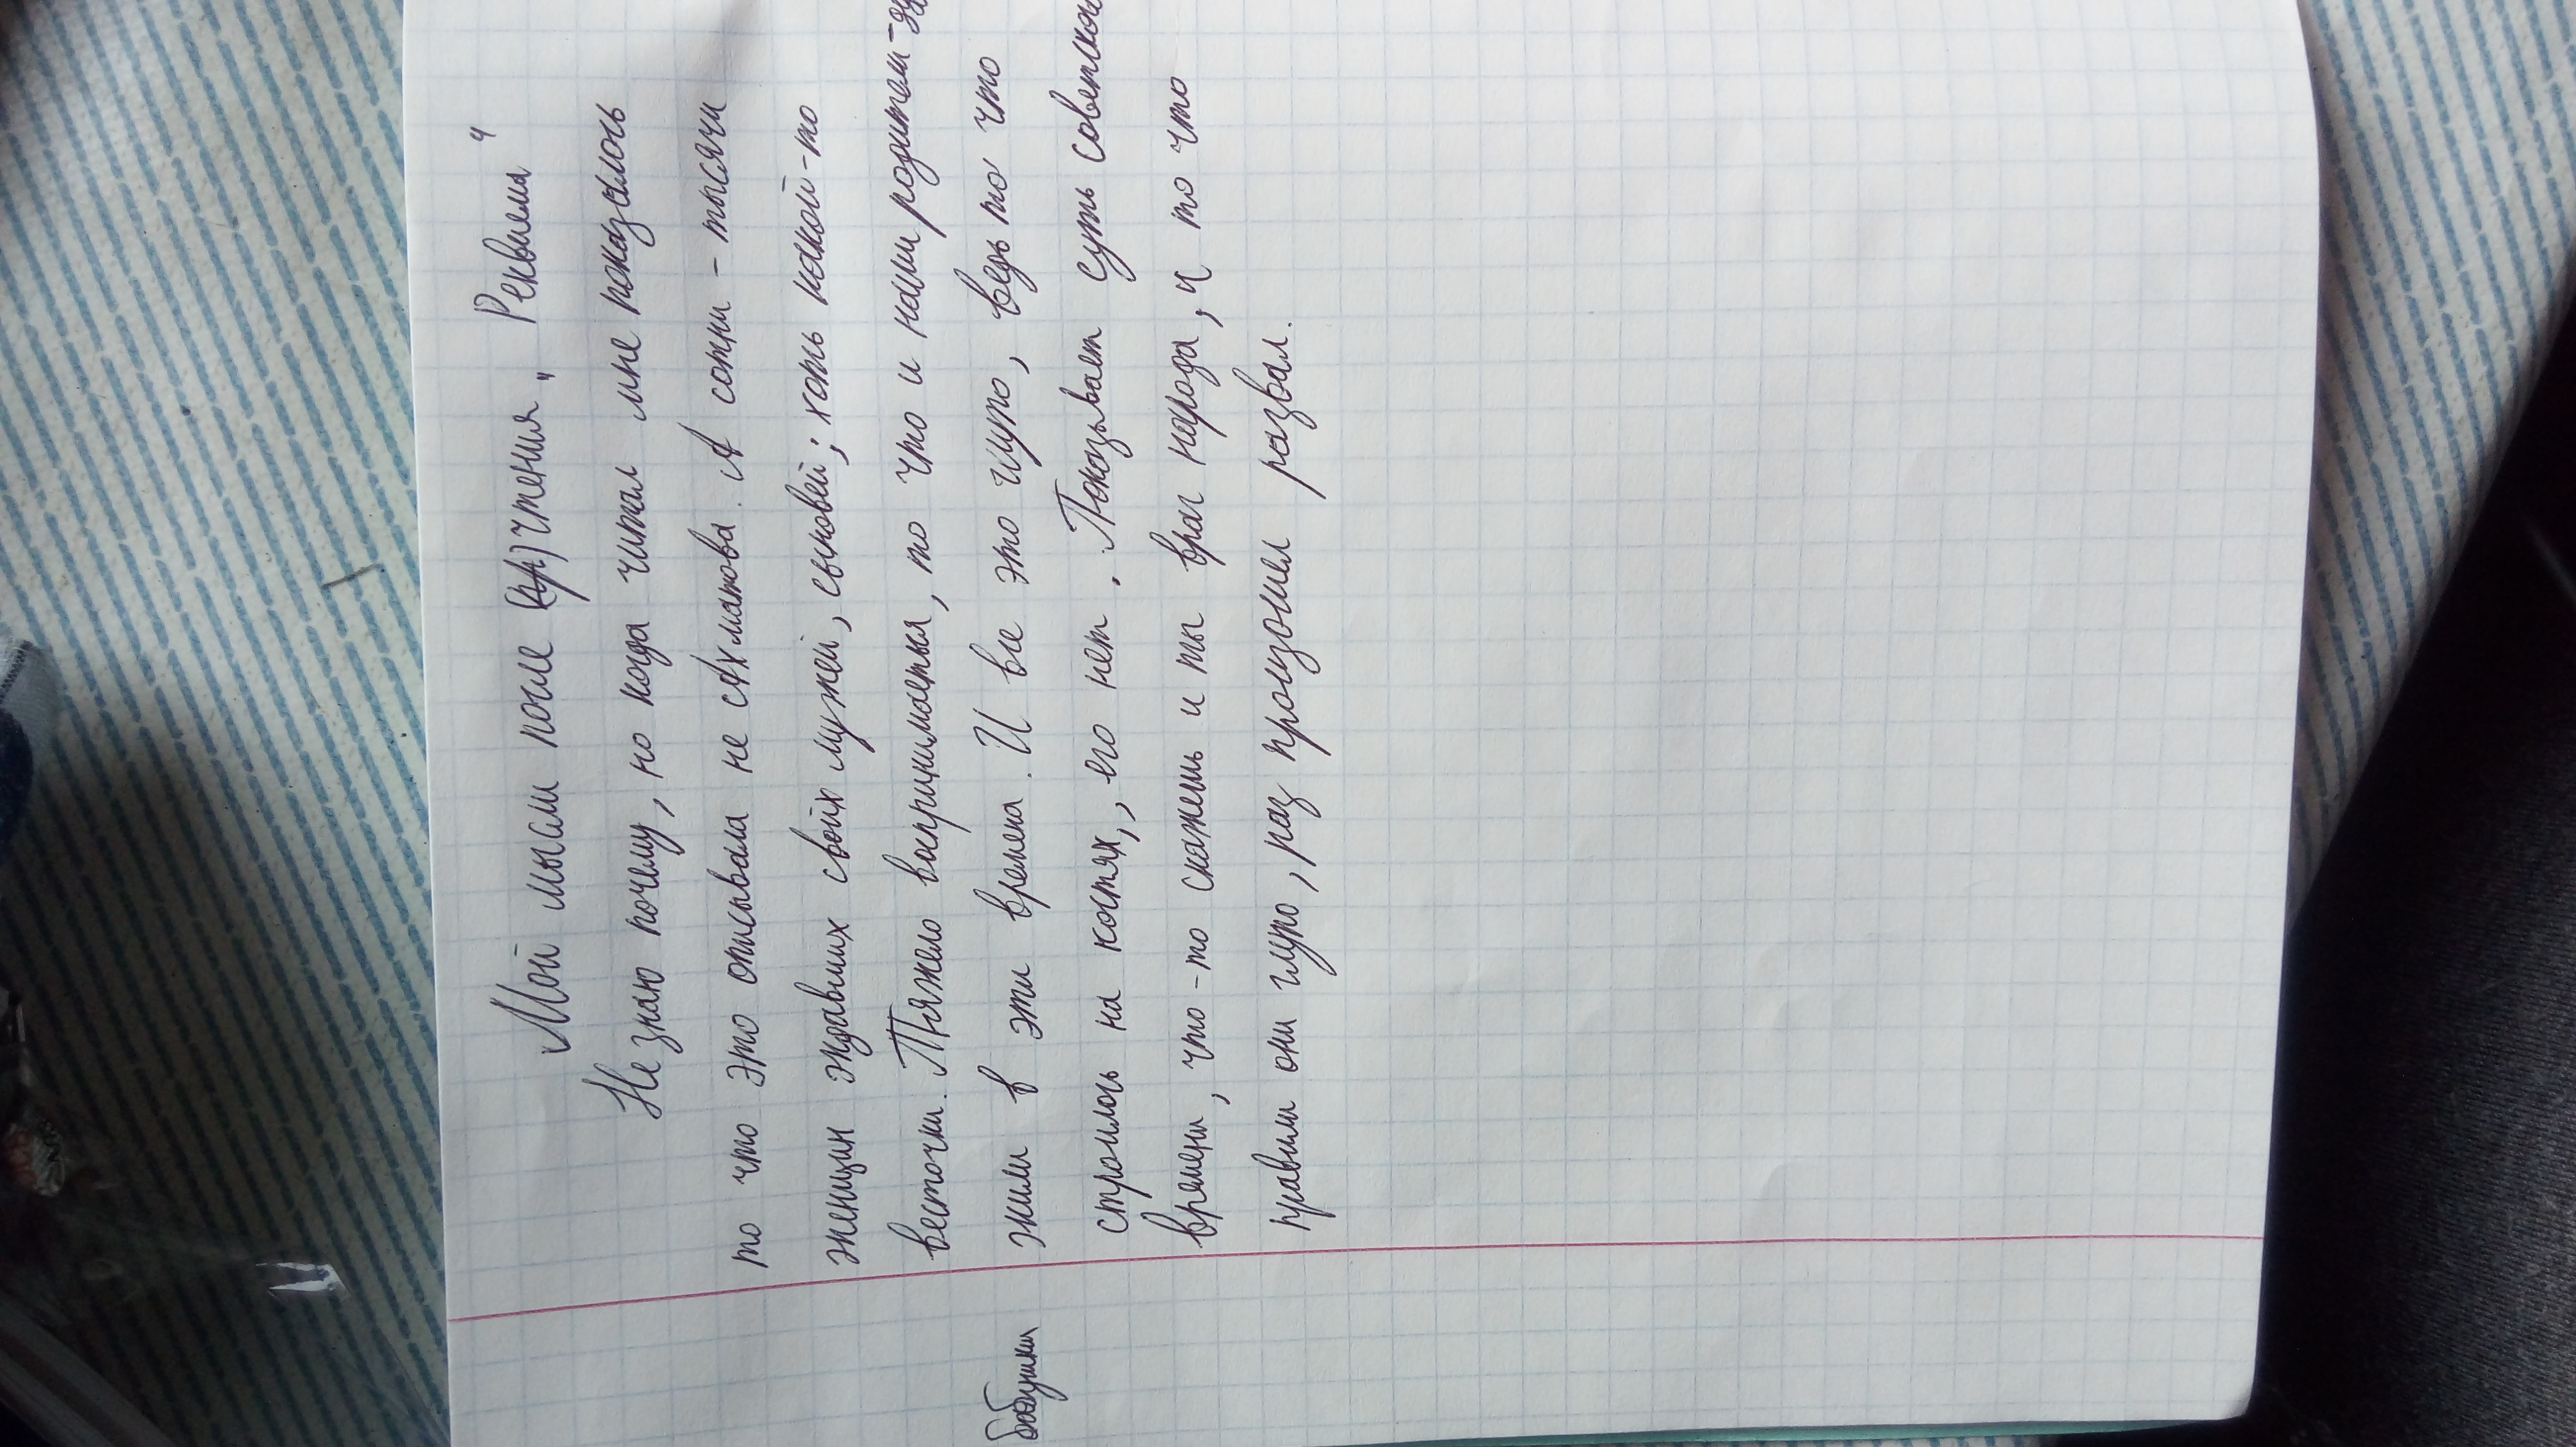 Мой мысли после чтения „Реквиема"
Не знаю почему, но когда читал мне показалось
то что это описывала не Ахматова. А сотни - тысячи
женщин ждавших свойх мужей, сыновей; хоть какой-то
весточки. Тяжело воспринимается, то что и наши родители-
бабушки жили в эти времена. И все это глупо, ведь то что
строилось на костях, его нет. Показывает суть советского
времени, что-то скажешь и ты враг народа, и то что
правили они глупо, раз произошел развал.